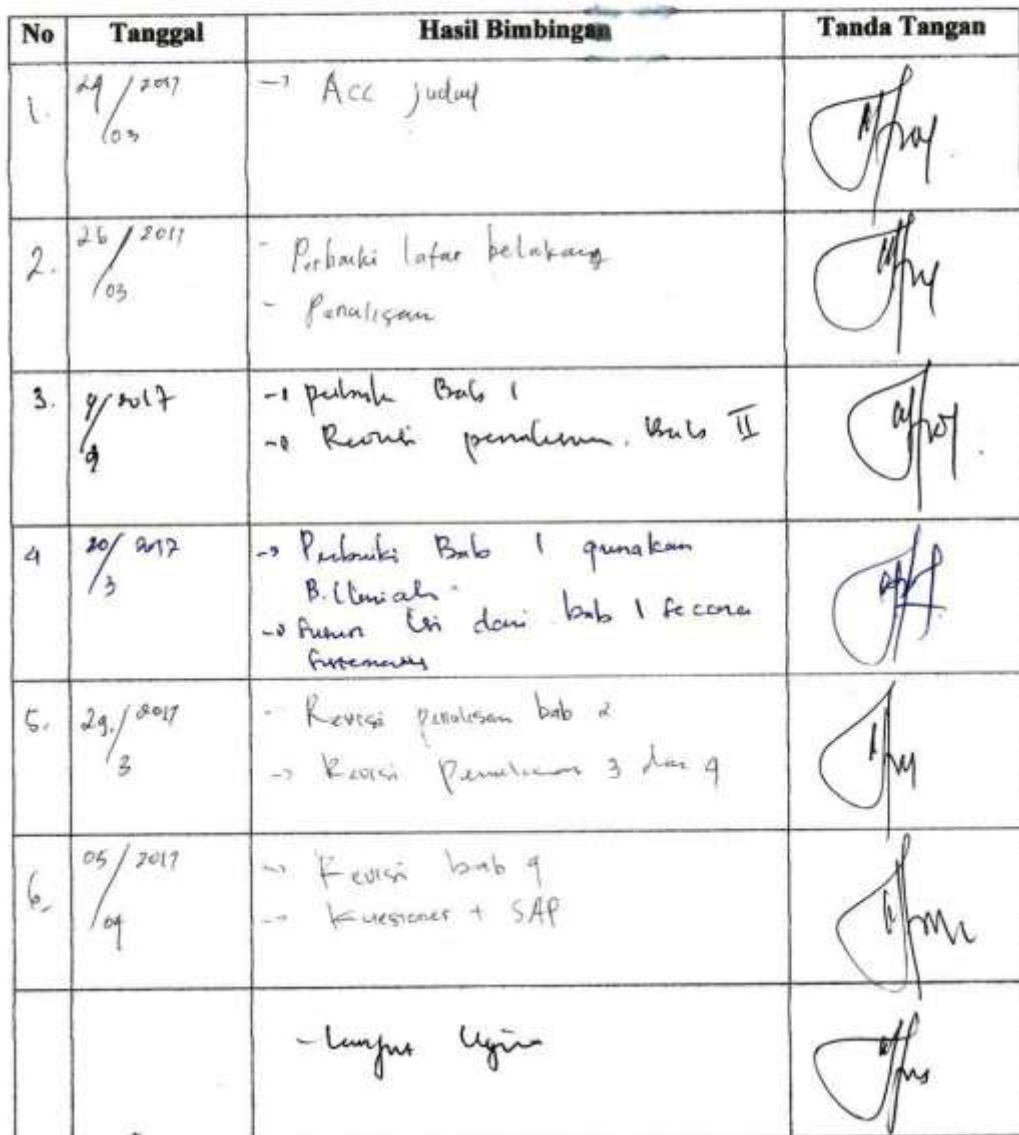 No Tanggal Hasil Bimbingan Tanda Tangan
1. 24/03 2017 → Acc judul
2. 26/03 2017 - Perbaiki latar belakang
- Penulisan
3. 2017 → perbaiki Bab 1
→ Revisi penulisan Bab II
4 20/3 2017 → Perbaiki Bab 1 gunakan
B. Ilmiah
→ Susun isi dari bab 1 secara
sistematis
5. 29/3 2017 - Revisi penulisan bab 2
→ Revisi Penulisan 3 dan 4
6. 05/04 2017 → Revisi bab 4
→ Kuesioner + SAP
- Lanjut Ujian